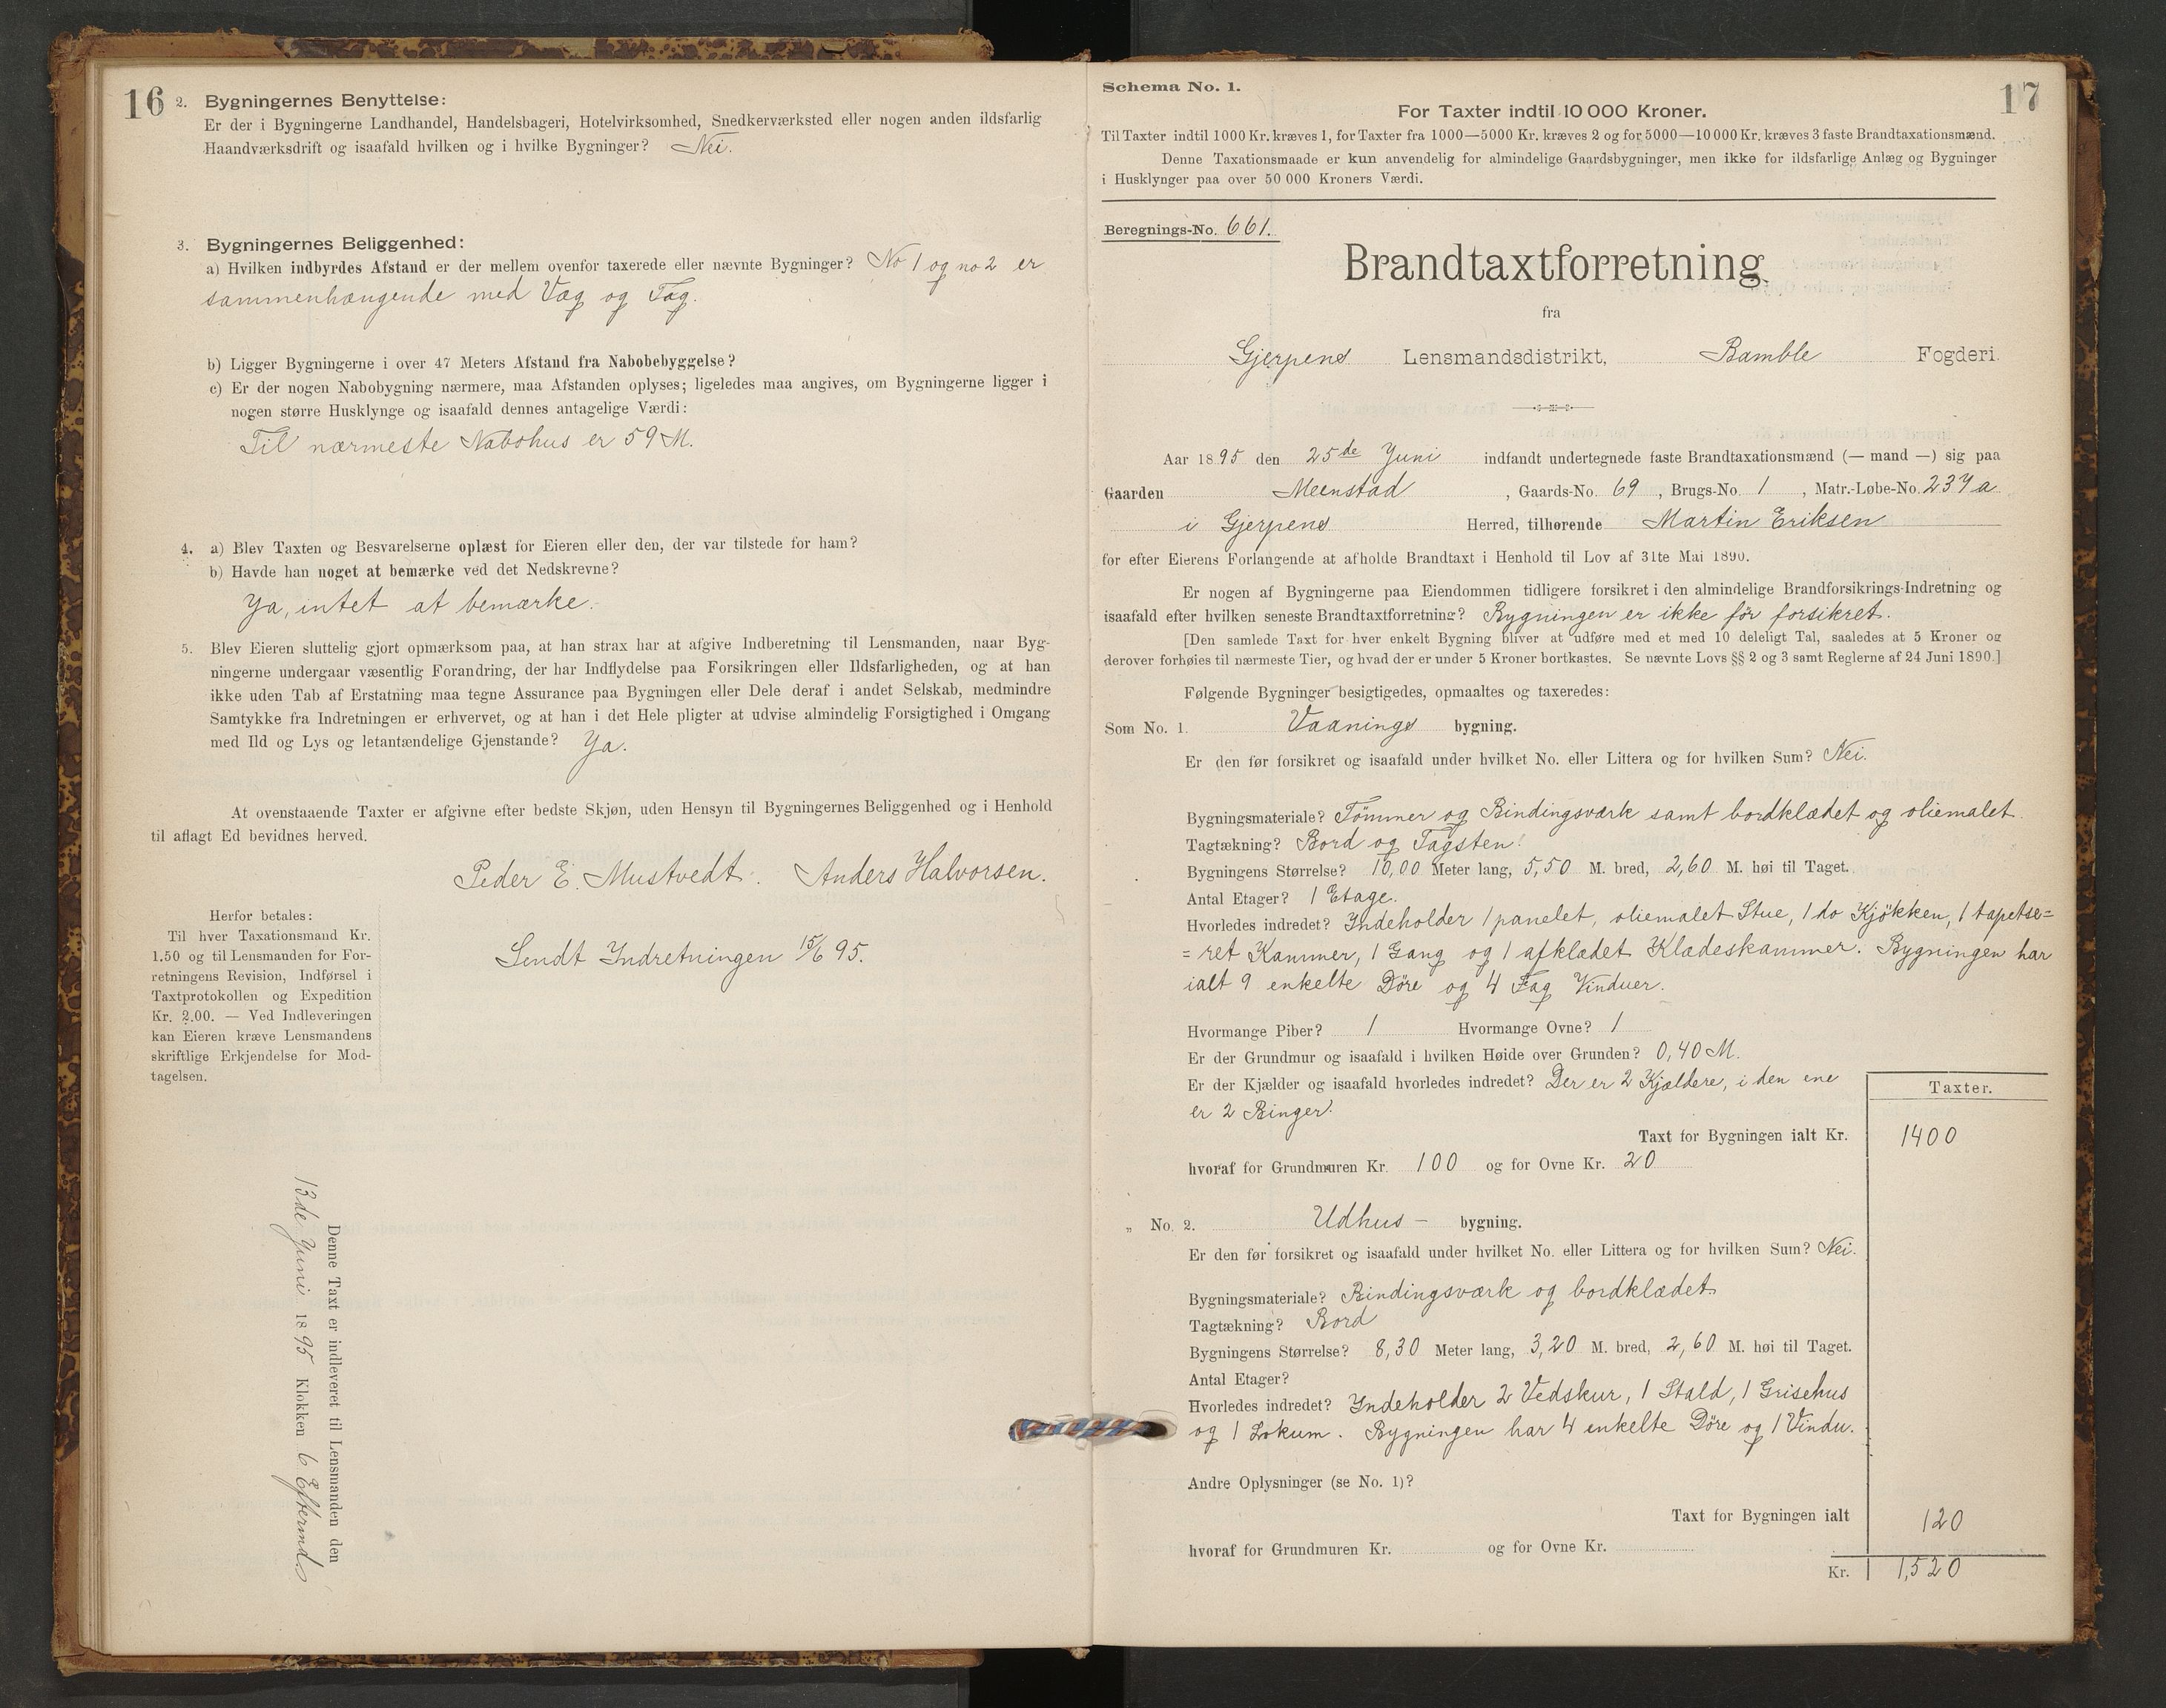 16
2. Bygningernes Benyttelse:
Er der i Bygningerne Landhandel, Handelsbageri, Hotelvirksomhed, Snedkerværksted eller nogen anden ildsfarlig
Haandværksdrift og isaafald hvilken og i hvilke Bygninger? Nei.
3. Bygningernes Beliggenhed:
a) Hvilken indbyrdes Afstand er der mellem ovenfor taxerede eller nævnte Bygninger? No 1 og no 2 er
sammenhængende med Væg og Tag.
b) Ligger Bygningerne i over 47 Meters Afstand fra Nabobebyggelse?
c) Er der nogen Nabobygning nærmere, maa Afstanden oplyses; ligeledes maa angives, om Bygningerne ligger i
nogen større Husklynge og isaafald dennes antagelige Værdi:
Til nærmeste Nabohus er 59 M.
4. a) Blev Taxten og Besvarelserne oplæst for Eieren eller den, der var tilstede for ham?
b) Havde han noget at bemærke ved det Nedskrevne?
Ja, intet at bemærke.
5. Blev Eieren sluttelig gjort opmærksom paa, at han strax har at afgive Indberetning til Lensmanden, naar Byg-
ningerne undergaar væsentlig Forandring, der har Indflydelse paa Forsikringen eller Ildsfarligheden, og at han
ikke uden Tab af Erstatning maa tegne Assurance paa Bygningen eller Dele deraf i andet Selskab, medmindre
Samtykke fra Indretningen er erhvervet, og at han i det Hele pligter at udvise almindelig Forsigtighed i Omgang
med Ild og Lys og letantændelige Gjenstande? Ja.
At ovenstaaende Taxter er afgivne efter bedste Skjøn, uden Hensyn til Bygningernes Beliggenhed og i Henhold
til aflagt Ed bevidnes herved.
Peder E. Mustvedt. Anders Halvorsen.
Herfor betales:
Til hver Taxationsmand Kr.
1.50 og til Lensmanden for For-
retningens Revision, Indførsel i
Taxtprotokollen og Expedition
Kr. 2.00. — Ved Indleveringen
kan Eieren kræve Lensmandens
skriftlige Erkjendelse for Mod-
tagelsen.
Sendt Indretningen 15/6 95.
Denne Taxt er indleveret til Lensmanden den
13de Juni 1895 Klokken 6 Eftermd.
17
Schema No. 1.
For Taxter indtil 10 000 Kroner.
Til Taxter indtil 1000 Kr. kræves 1, for Taxter fra 1000—5000 Kr. kræves 2 og for 5000—10 000 Kr. kræves 3 faste Brandtaxationsmænd.
Denne Taxationsmaade er kun anvendelig for almindelige Gaardsbygninger, men ikke for ildsfarlige Anlæg og Bygninger
i Husklynger paa over 50 000 Kroners Værdi.
Beregnings-No. 661.
Brandtaxtforretning
fra
Gjerpens Lensmandsdistrikt, Bamble Fogderi.
Aar 1895 den 25de Juni indfandt undertegnede faste Brandtaxationsmænd (— mand —) sig paa
Gaarden Meenstad, Gaards-No. 69, Brugs-No. 1, Matr.-Løbe-No. 237a
i Gjerpens Herred, tilhørende Martin Eriksen
for efter Eierens Forlangende at afholde Brandtaxt i Henhold til Lov af 31te Mai 1890.
Er nogen af Bygningerne paa Eiendommen tidligere forsikret i den almindelige Brandforsikrings-Indretning og
isaafald efter hvilken seneste Brandtaxtforretning? Bygningen er ikke før forsikret.
[Den samlede Taxt for hver enkelt Bygning bliver at udføre med et med 10 deleligt Tal, saaledes at 5 Kroner og
derover forhøies til nærmeste Tier, og hvad der er under 5 Kroner bortkastes. Se nævnte Lovs §§ 2 og 3 samt Reglerne af 24 Juni 1890.]
Følgende Bygninger besigtigedes, opmaaltes og taxeredes:
Som No. 1. Vaanings bygning.
Er den før forsikret og isaafald under hvilket No. eller Littera og for hvilken Sum? Nei.
Bygningsmateriale? Tømmer og Bindingsværk samt bordklædet og oliemalet.
Tagtækning? Bord og Tagsten.
Bygningens Størrelse? 10,00 Meter lang, 5,50 M. bred, 2,60 M. høi til Taget.
Antal Etager? 1 Etage.
Hvorledes indredet? Indeholder 1 panelet, oliemalet Stue, 1 do Kjøkken, 1 tapetse=
=ret Kammer, 1 Gang og 1 afklædet Klædeskammer. Bygningen har
ialt 9 enkelte Døre og 4 Fag Vinduer.
Hvormange Piber? 1 Hvormange Ovne? 1
Er der Grundmur og isaafald i hvilken Høide over Grunden? 0,40 M.
Er der Kjælder og isaafald hvorledes indredet? Der er 2 Kjældere, i den ene
er 2 Binger.
Taxter.
Taxt for Bygningen ialt Kr. 1400
hvoraf for Grundmuren Kr. 100 og for Ovne Kr. 20
„ No. 2. Udhus — bygning.
Er den før forsikret og isaafald under hvilket No. eller Littera og for hvilken Sum? Nei.
Bygningsmateriale? Bindingsværk og bordklædet
Tagtækning? Bord
Bygningens Størrelse? 8,30 Meter lang, 3,20 M. bred, 2,60 M. høi til Taget.
Antal Etager?
Hvorledes indredet? Indeholder 2 Vedskur, 1 Stald, 1 Grisehus
og 1 Lokum. Bygningen har 4 enkelte Døre og 1 Vindu.
Andre Oplysninger (se No. 1)?
Taxt for Bygningen ialt 120
hvoraf for Grundmuren Kr. og for Ovne Kr.
Kr. 1,520